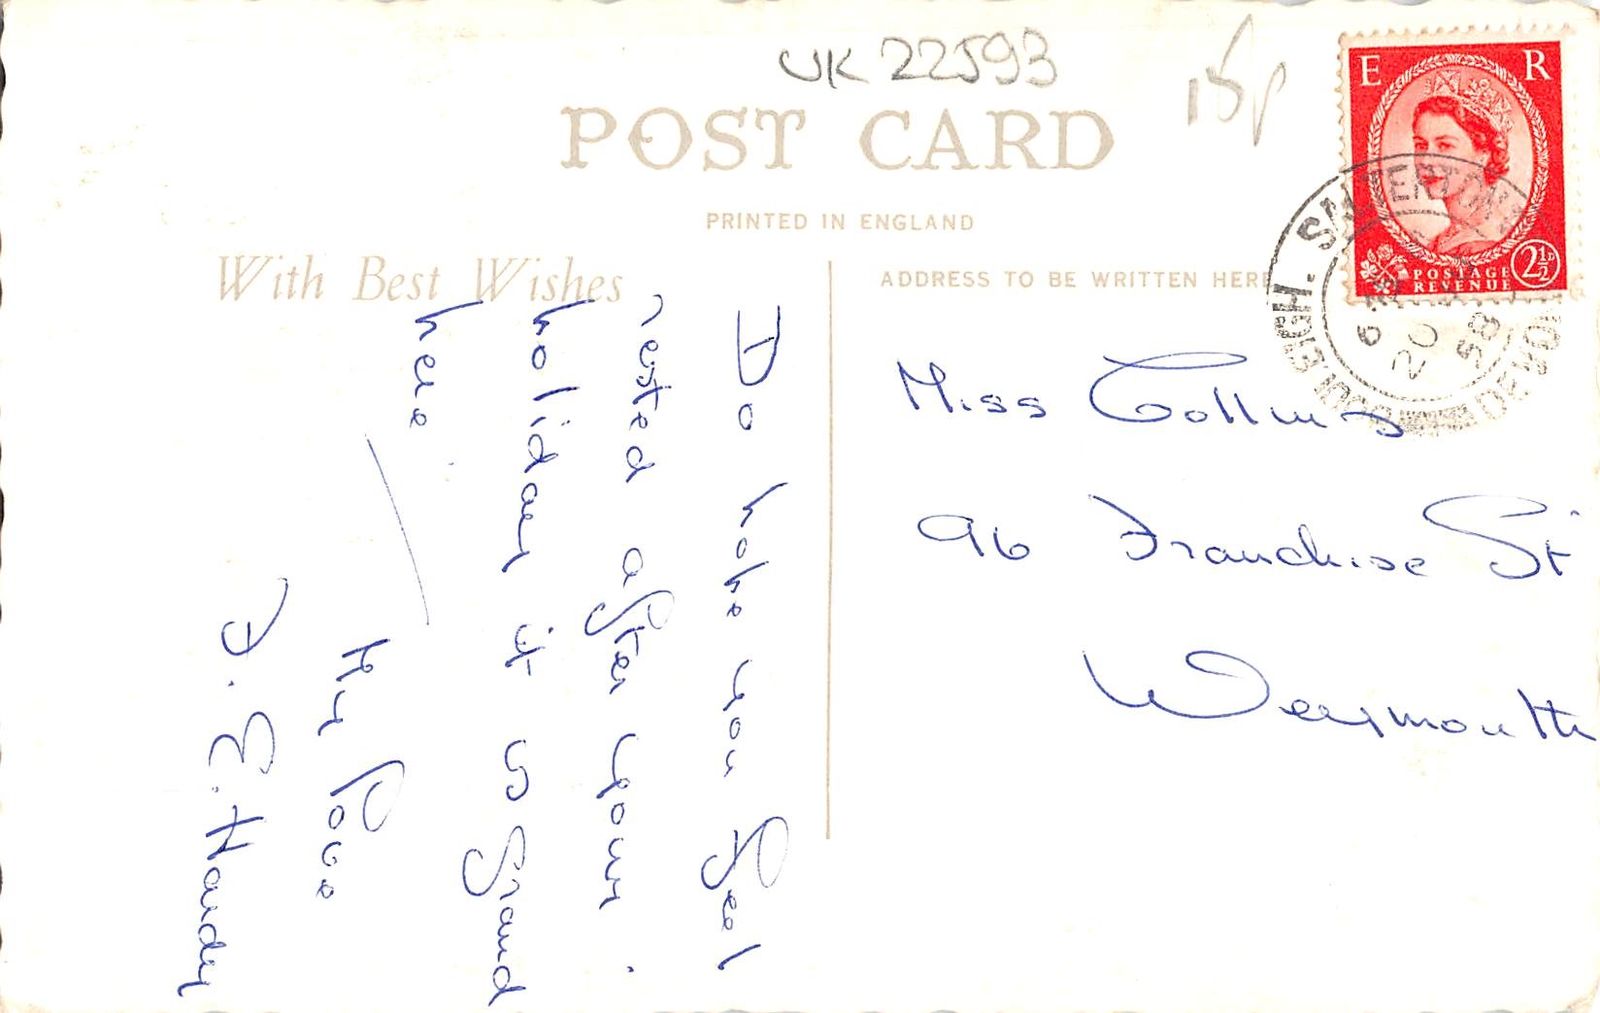 UK 22593
15p
POST CARD
PRINTED IN ENGLAND
With Best Wishes
ADDRESS TO BE WRITTEN HERE
E R
POSTAGE
REVENUE
2½D
BUDLEIGH. SALTERTON
DEVON
20
58
Do hope you feel
rested after your
holiday it is grand
here
My love
F. E. Handy
Miss Collins
96 Franchise St
Weymouth